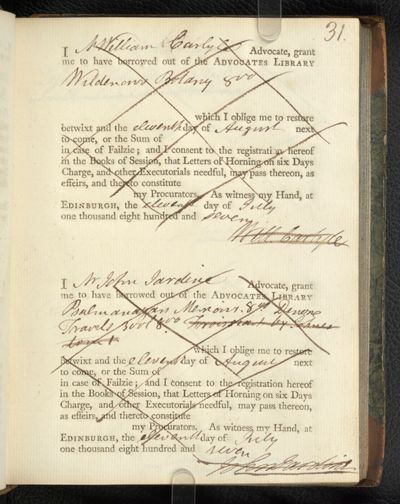 31.
I Mr William Carlyle Advocate, grant
me to have borrowed out of the ADVOCATES LIBRARY
Wildenows Botany 8vo
which I oblige me to restore
betwixt and the eleventh day of August next
to come, or the Sum of
in case of Failzie; and I consent to the registration hereof
in the Books of Session, that Letters of Horning on six Days
Charge, and other Executorials needful, may pass thereon, as
effeirs, and thereto constitute
my Procurators. As witness my Hand, at
EDINBURGH, the eleventh day of July
one thousand eight hundred and seven
Will Carlyle
I Mr John Jardine Advocate, grant
me to have borrowed out of the ADVOCATES LIBRARY
Psalmanazars Memoirs. 8vo Denons
Travels 3 vol 8vo by James
which I oblige me to restore
betwixt and the eleventh day of August next
to come, or the Sum of
in case of Failzie; and I consent to the registration hereof
in the Books of Session, that Letters of Horning on six Days
Charge, and other Executorials needful, may pass thereon,
as effeirs, and thereto constitute
my Procurators. As witness my Hand, at
EDINBURGH, the eleventh day of July
one thousand eight hundred and seven
John Jardine